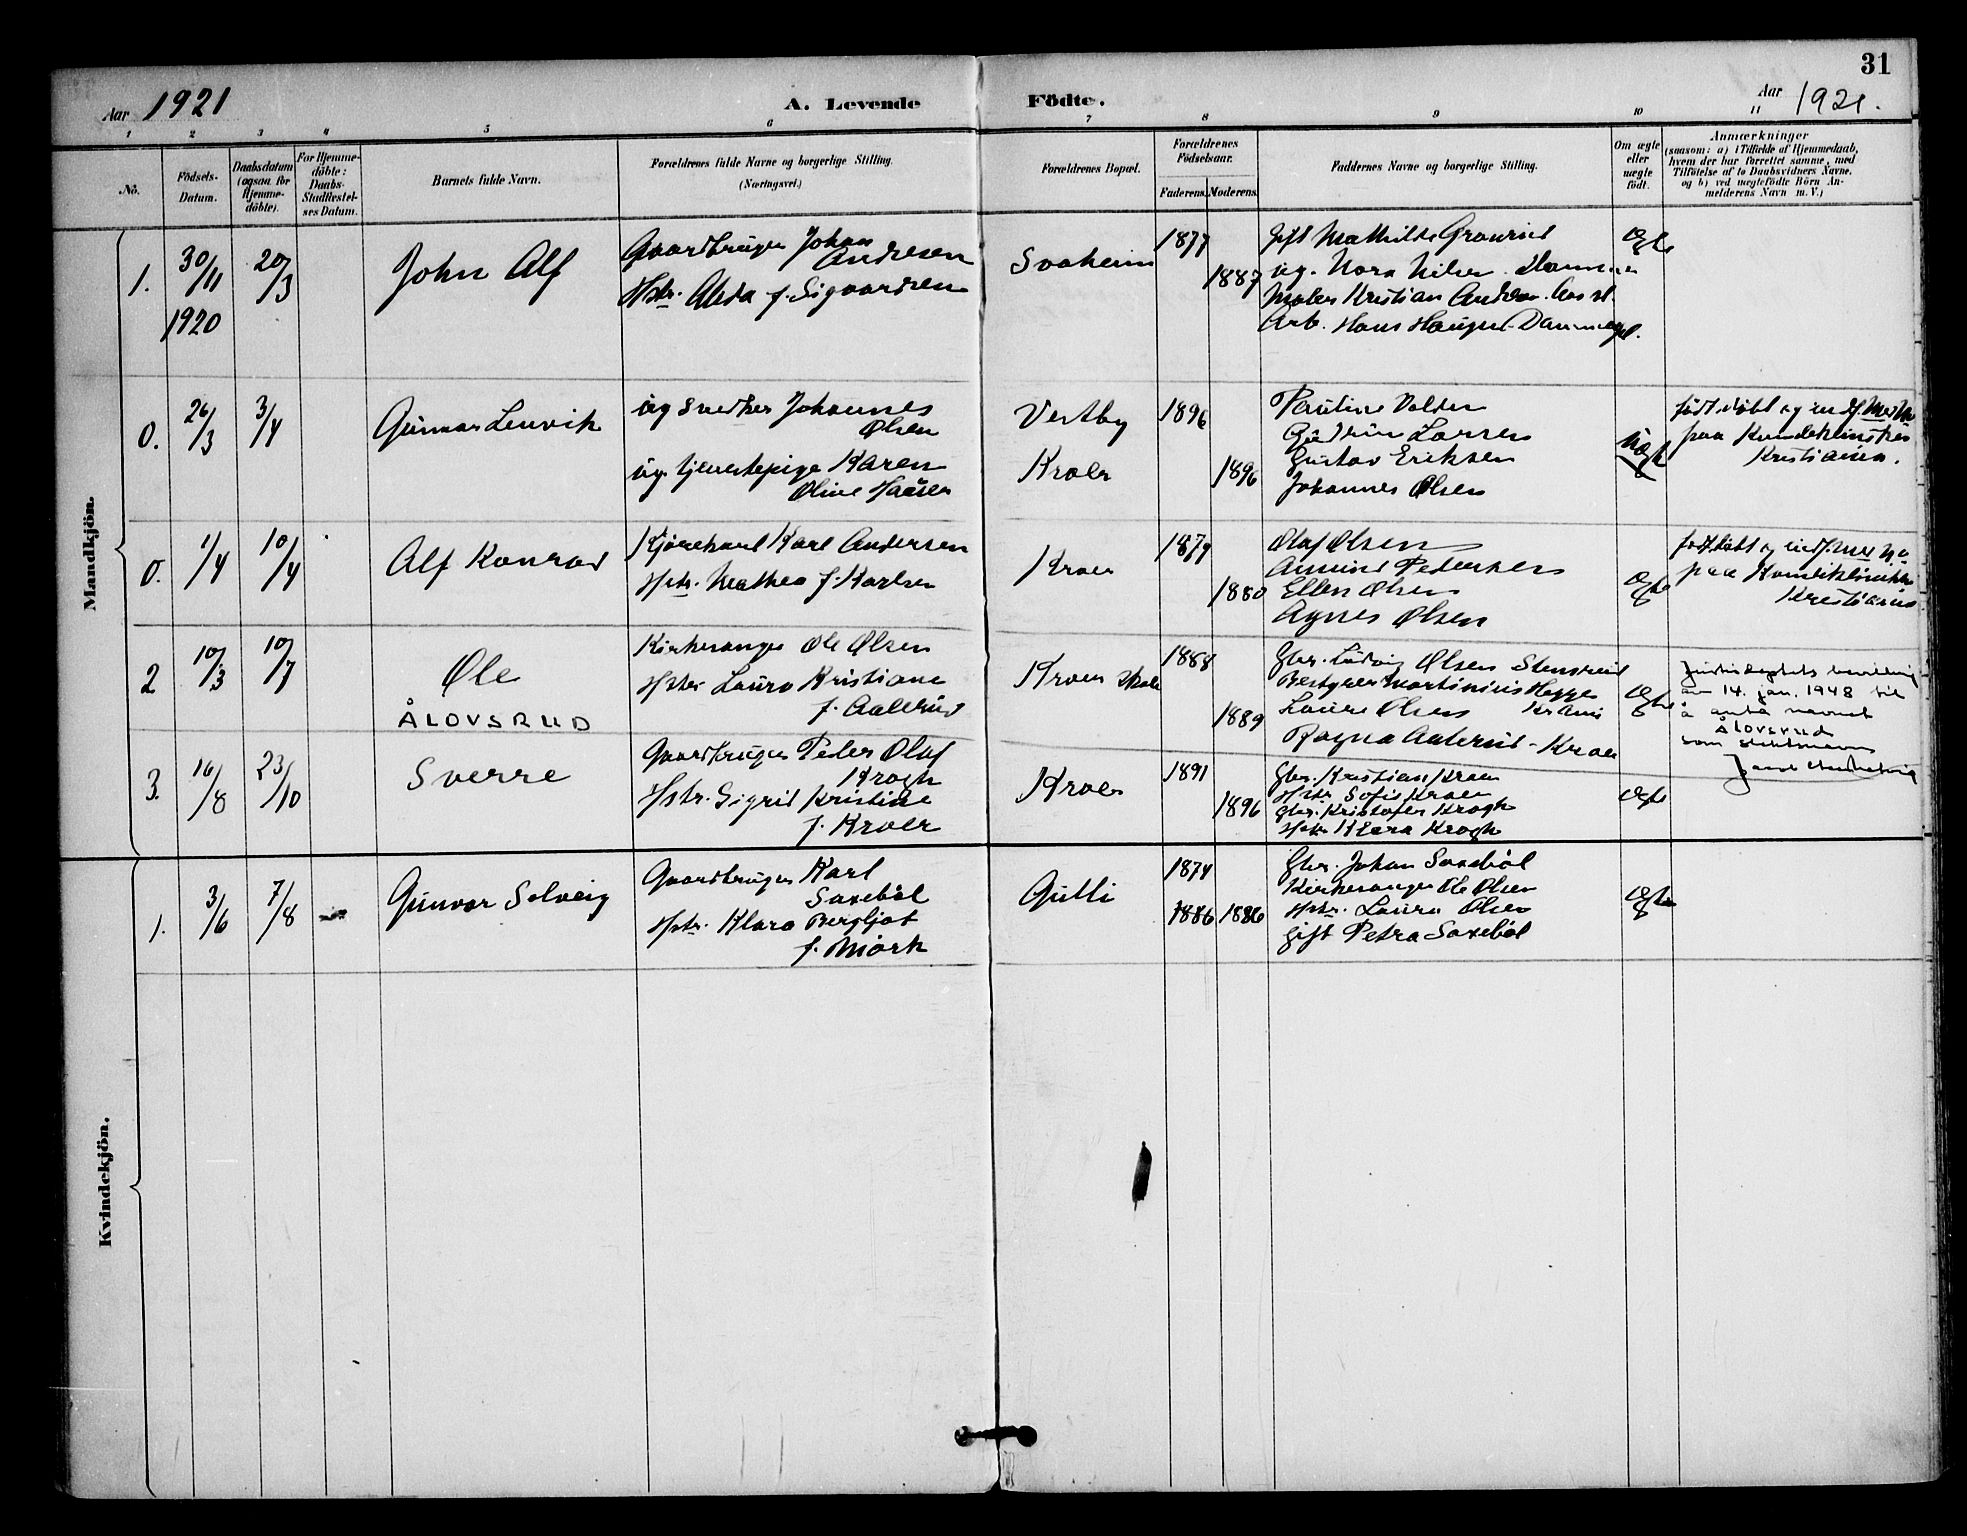 31
Aar 1921
A. Levende Födte.
Aar 1921.
1 2 3 4 5 6 7 8 9 10 11
No.
Födsels-Datum.
Daabsdatum (ogsaa for Hjemme-döbte).
For Hjemme-döbte: Daabs-Stadfæstel-ses Datum.
Barnets fulde Navn.
Forældrenes fulde Navne og borgerlige Stilling.
(Næringsvei.)
Forældrenes Bopæl.
Forældrenes Födselsaar.
Faderens. Moderens.
Faddernes Navne og borgerlige Stilling.
Om ægte eller uægte födt.
Anmærkninger
(saasom: a) i Tilfælde af Hjemmedaab,
hvem der har forrettet samme, med
Tilföielse af to Daabsvidners Navne,
og b) ved uægtefödte Börn An-
melderens Navn m. V.)
Mandkjön.
1. 30/11 1920
20/3
John Alf
Gaardbruger Johan
Andresen
Hstr. Alida f. Sigvardsen
Svaheim
1877
1887
gift Mathilde Granrud
ug. Nora Nilsen
Maler Kristian
Arb. Hans Haugen
Ægte
0. 26/3
3/4
Gunnar Lenvik
ug snedker Johannes
Olsen
ug. tjenestepige Karen
Oline
Vestby
Kroer
1896
1896
Pauline
Gudrun Larsen
Gustav Eriksen
Johannes Olsen
Uægte
født døbt og indf.
paa Kvindeklinikken
Kristiania.
0. 1/4
10/4
Alf Konrad
Kjørekarl Karl Andersen
Hstr. Mathea f. Karlsen
Kroer
1879
1880
Olaf Olsen
Amund Pedersen
Ellen Olsen
Agnes Olsen
Ægte
født døbt og indf.
paa Kvindeklinikken
Kristiania
2 10/3
10/7
Ole
ÅLOVSRUD
Kirkesanger Ole Olsen
Hstr. Laura Kristiane
f. Aalerud
Kroer skole
1888
1889
Gbr. Ludvig Olsen Stensrud
Bestyrer Martinius Hegge
Laura Olsen Krania
Ragna Aalerud - Kroer
Ægte
Justisdeptets bevilling
av 14. jan. 1948 til
å anta navnet
ÅLOVSRUD
som slektsnavn
3. 16/8
23/10
Sverre
Gaardbruger Peder Olaf
Krogh
Hstr. Sigrid Kristine
f. Kroer
Kroer
1891
1896
Gbr. Kristian Kroer
Hstr. Sofie Kroer
Gbr. Kristofer Krogh
Hstr. Klara Krogh
Ægte
Kvindekjön.
1. 3/6
7/8
Gunvor Solveig
Gaardbruger Karl
Saxebøl
Hstr. Klara Bergljot
f. Mørk
Gulli
1874
1886 1886
Gbr. Johan Saxebøl
Kirkesanger Ole Olsen
Hstr. Laura Olsen
gift Petra Saxebøl
Ægte